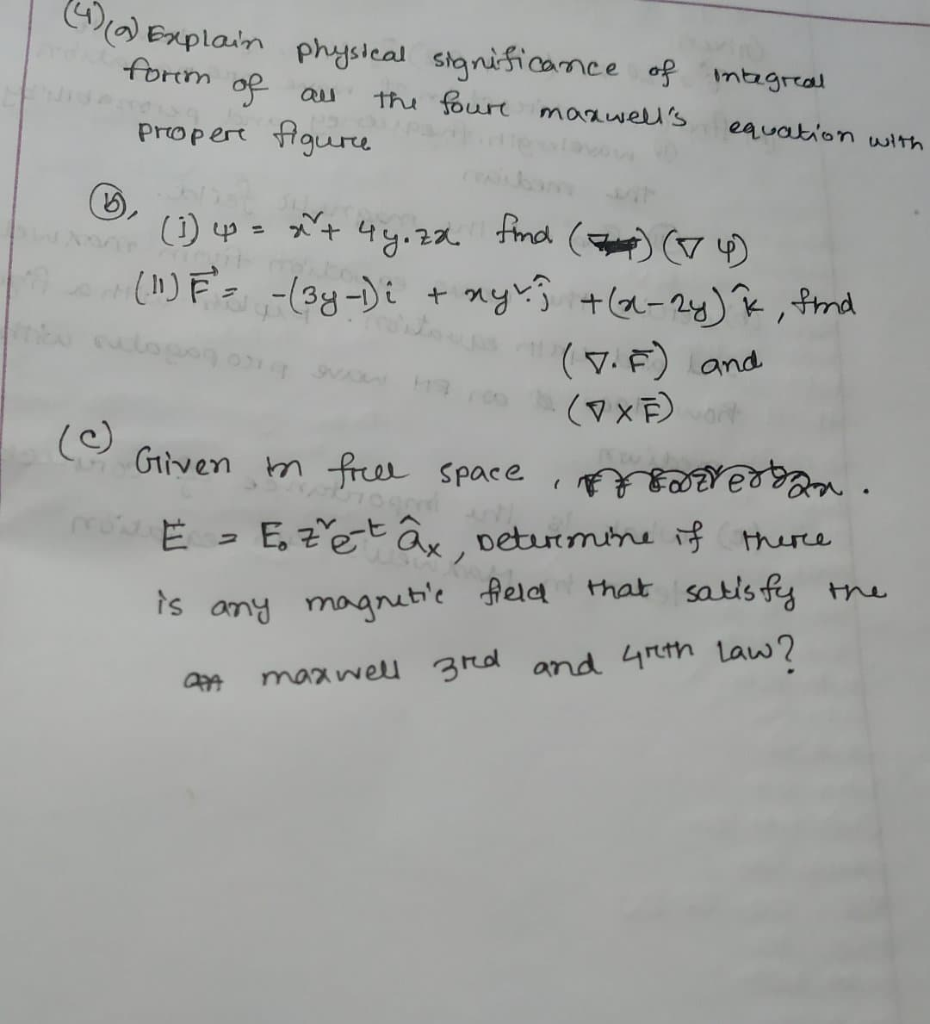 (4)(a) Explain physical significance of integral
form of all the four maxwell's equation with
proper figure
(b), (i) ψ = x² + 4y.zx find (∇ψ)
(ii) F⃗ = -(3y-1)î + xy².ĵ + (x-2y) k̂, find
(∇.F̄) and
(∇×F̄)
(c) Given in free space,
E = E₀ z² e⁻ᵗ âₓ, Determine if there
is any magnetic field that satisfy the
maxwell 3rd and 4rth law?